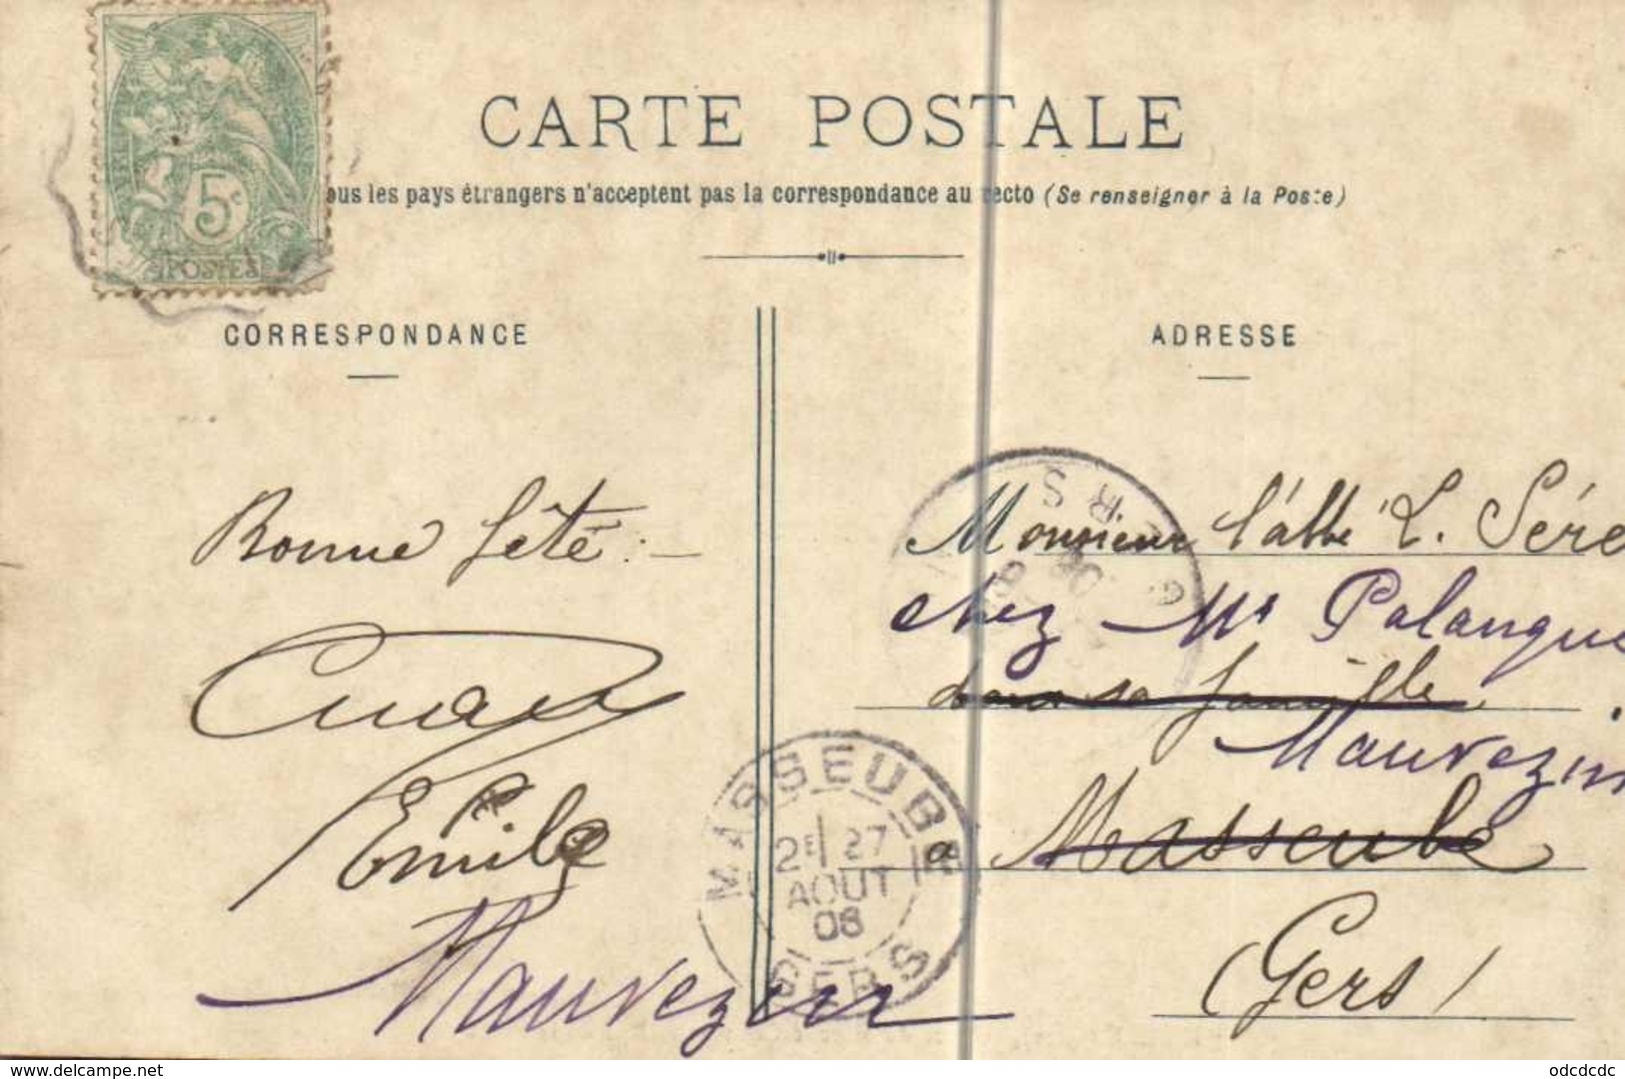 5c
POSTES
CARTE POSTALE
ous les pays étrangers n'acceptent pas la correspondance au recto (Se renseigner à la Poste)
CORRESPONDANCE
ADRESSE
Bonne fête :
Emile
Mauvezin
MASSEUBE
2E 27
AOUT
08
GERS
GERS
Monsieur l'abbé L. Sére
chez Mr Palanque
dans sa famille
Mauvezin
a Masseube
(Gers)
www.delcampe.net
odcdcdc